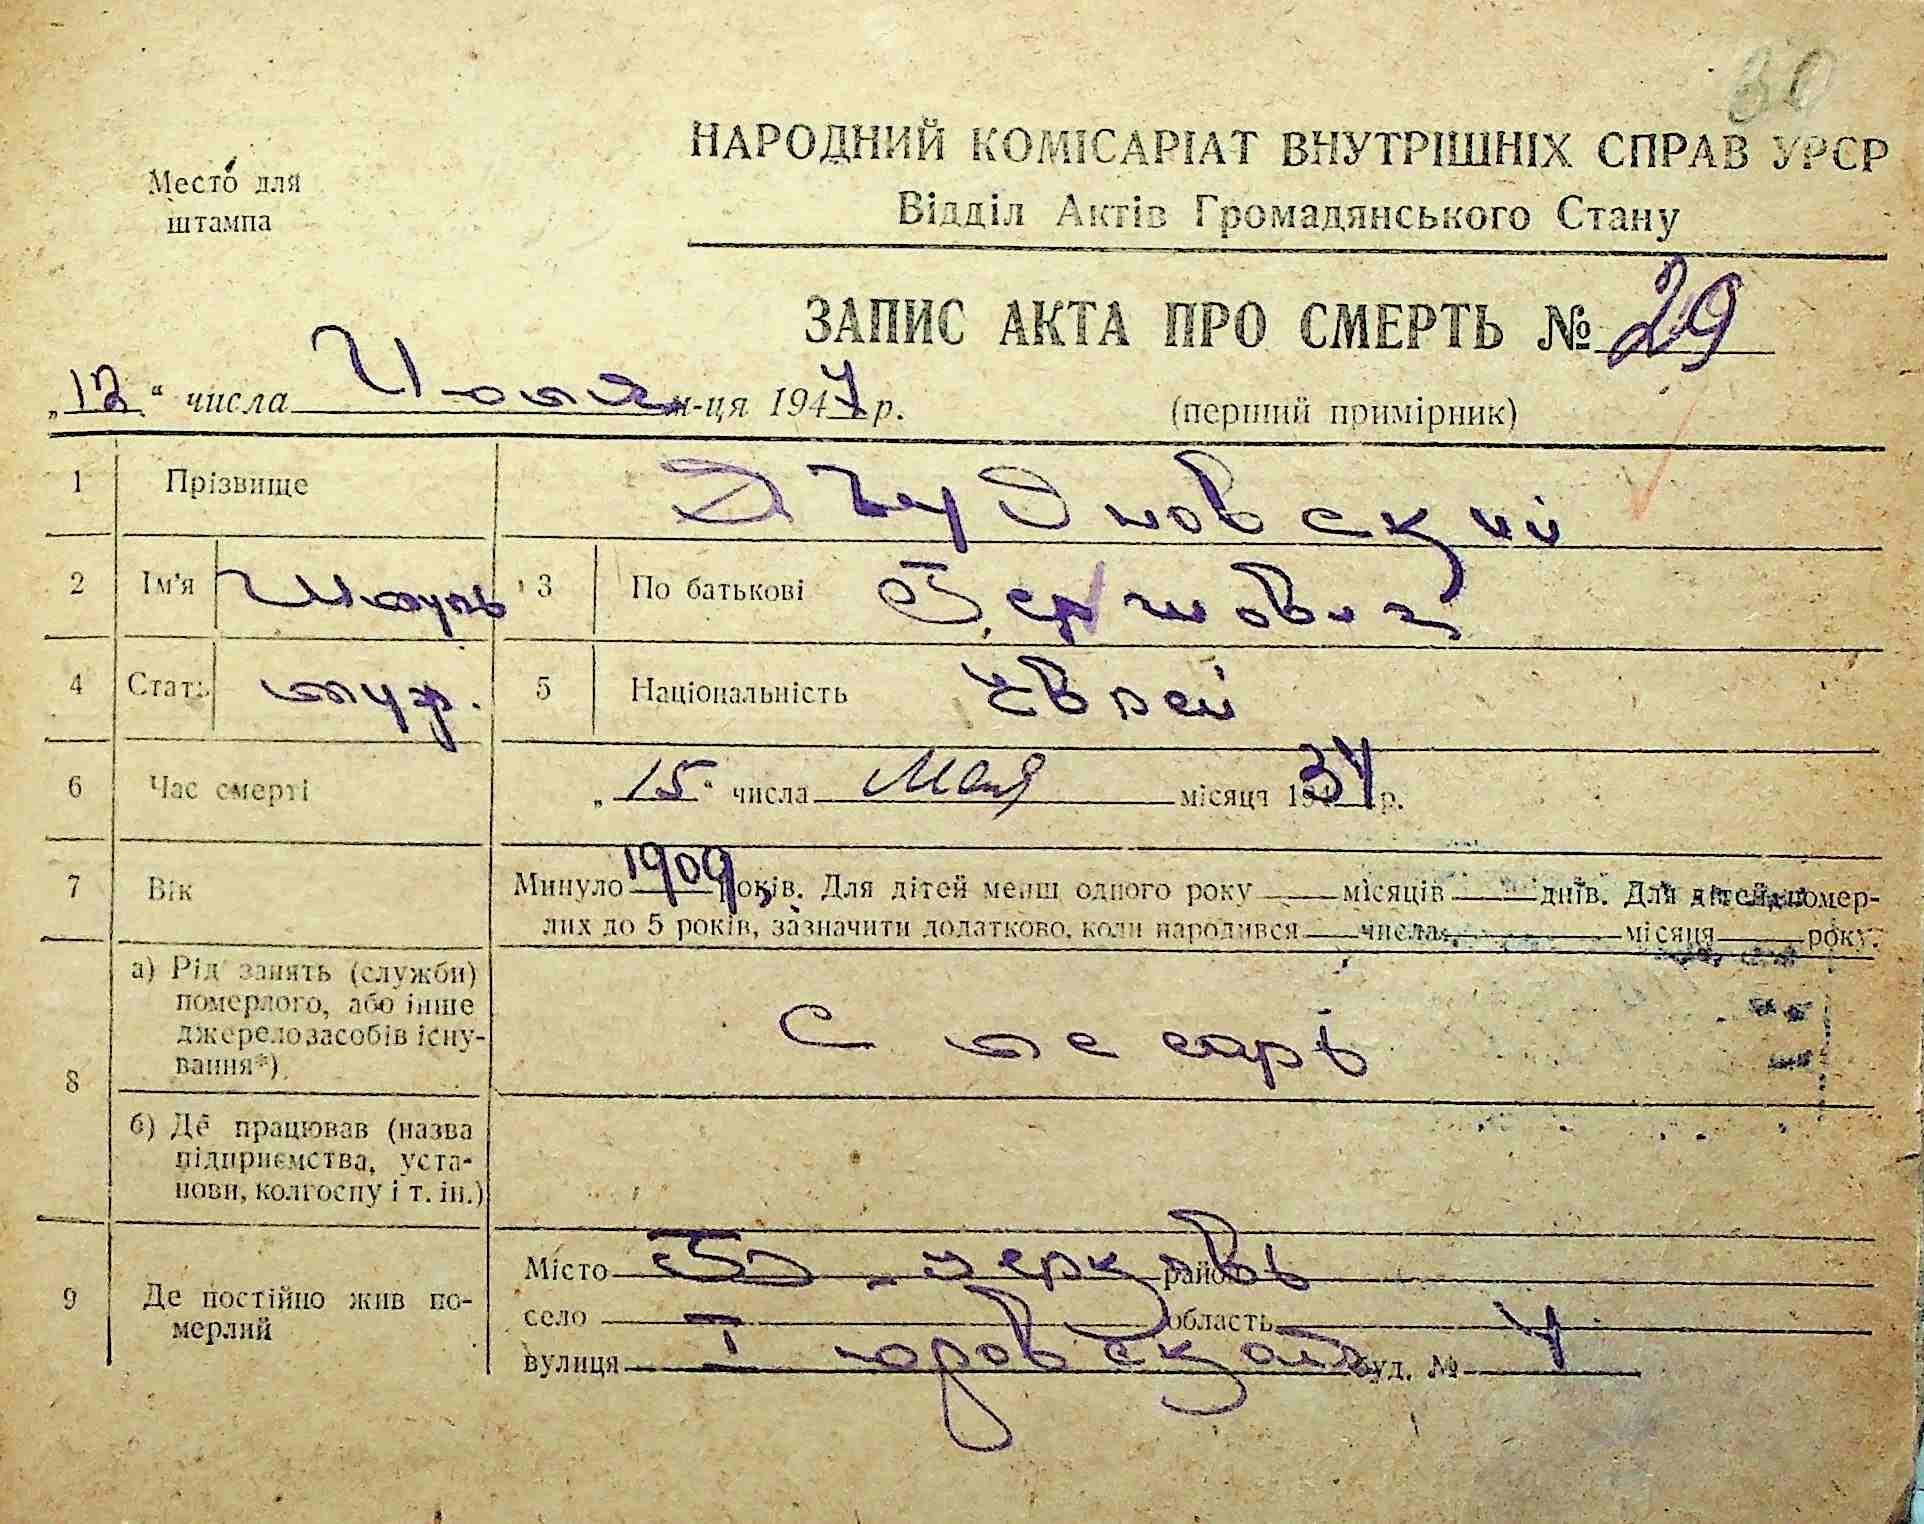 30
НАРОДНИЙ КОМІСАРІАТ ВНУТРІШНІХ СПРАВ УРСР
Место для штампа
Відділ Актів Громадянського Стану
ЗАПИС АКТА ПРО СМЕРТЬ № 29
„12“ числа м-ця 1947 р.
(перший примірник)
1 Прізвище
2 Ім'я Шмуль 3 По батькові Гершович
4 Стать муж. 5 Національність Еврей
6 Час смерті „15“ числа Мая місяця 1937 р.
7 Вік Минуло 1909 років. Для дітей менш одного року місяців днів. Для дітей, помер-
лих до 5 років, зазначити додатково, коли народився числа місяця року.
8 а) Рід занять (служби)
померлого, або інше
джерело засобів існу-
вання*)
Слесарь
б) Де працював (назва
підприємства, уста-
нови, колгоспу і т. ін.)
9 Де постійно жив по-
мерлий
Місто Б-Церковь район
село область
вулиця I буд. №